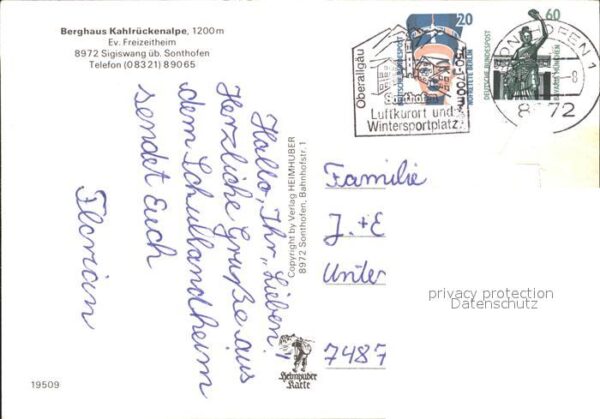 Berghaus Kahlrückenalpe, 1200m
Ev. Freizeitheim
8972 Sigiswang üb. Sonthofen
Telefon (08321) 89065
Hallo, Ihr „Lieben"!
Herzliche Grüße aus
dem Schullandheim
sendet Euch
Florian
Copyright by Verlag HEIMHUBER
8972 Sonthofen, Bahnhofstr. 1
Heimhuber
Karte
19509
20
DEUTSCHE BUNDESPOST
60
DEUTSCHE BUNDESPOST
BAVARIA MÜNCHEN
Oberallgäu
750-1700m
Sonthofen
Luftkurort und
Wintersportplatz
SONTHOFEN 1
-8
8972
Familie
J. + E
Unter
7487
privacy protection
Datenschutz